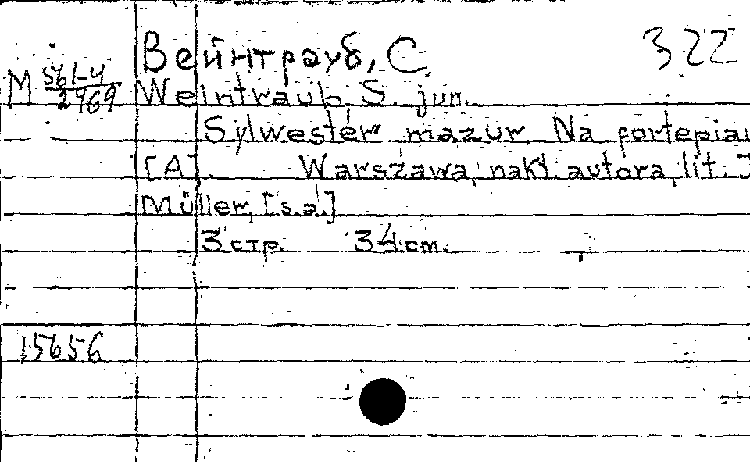 Вейнтрауб, С. 322
М 561-4/2969
Weintraub S. jun.
Sylwester mazur. Na fortepian
[A]. Warszawa, nakł. autora, lit. J
Müller, [s.a.]
3 стр. 34 cm.
15656